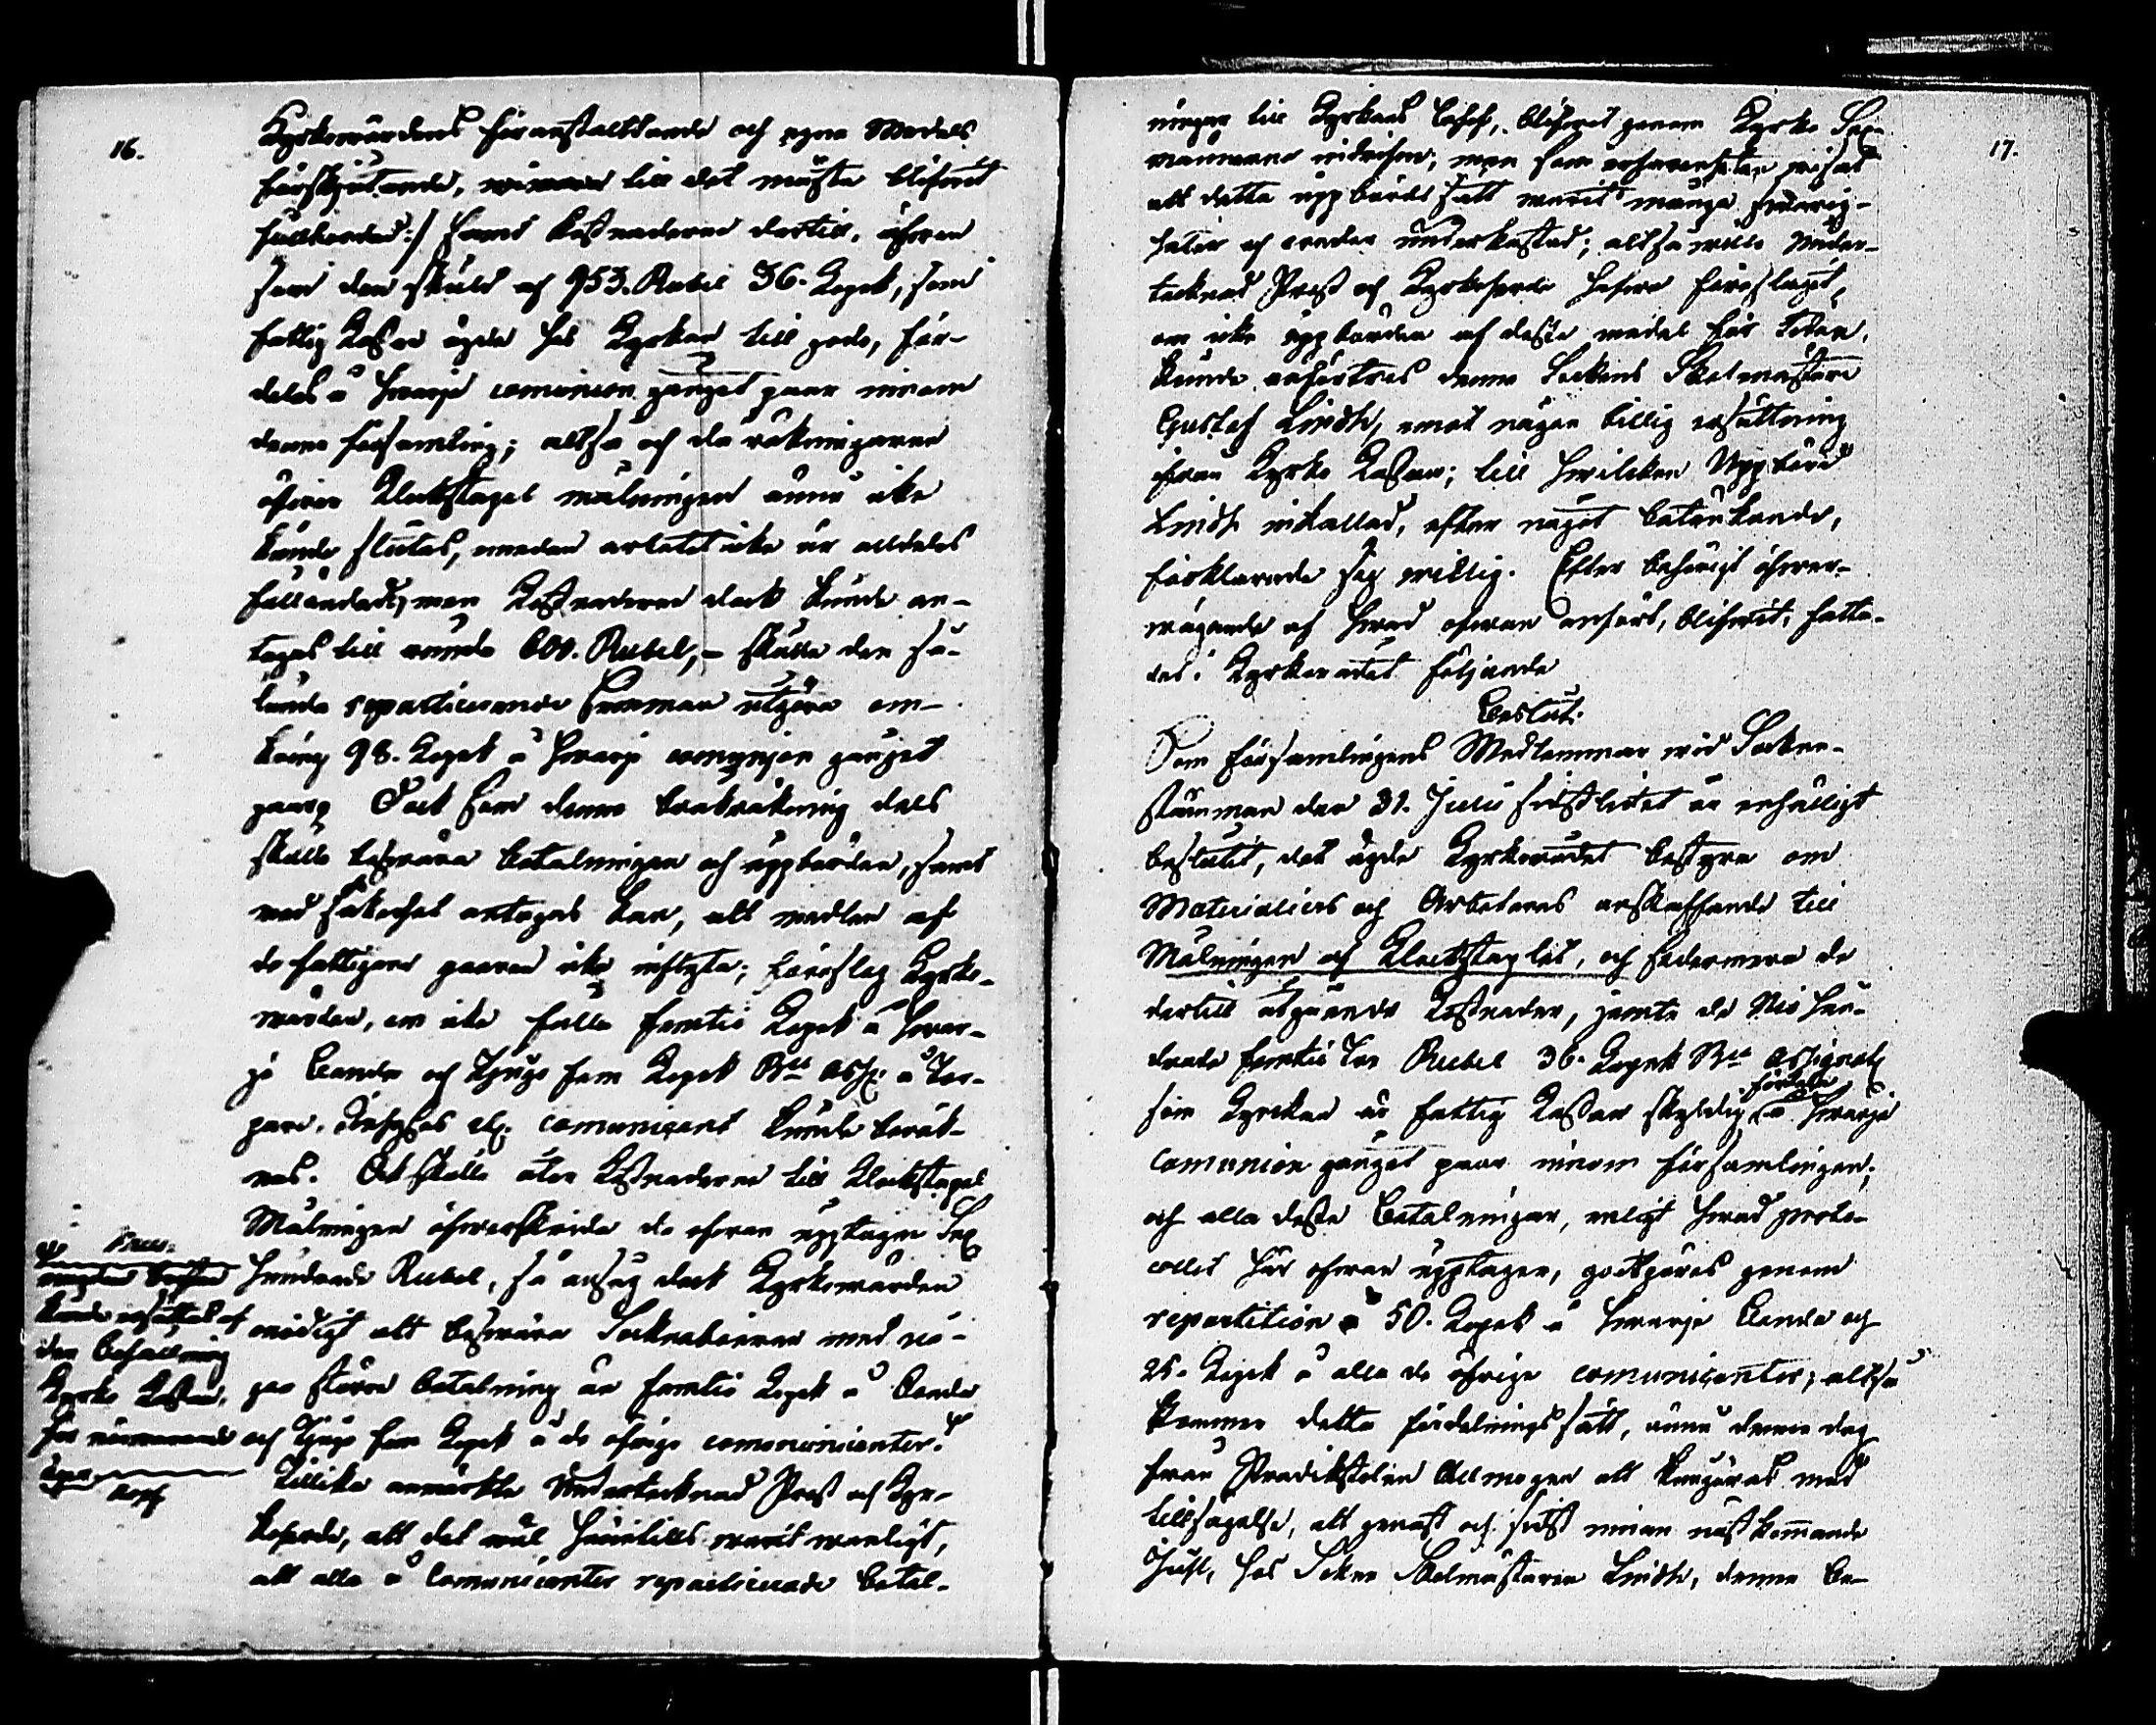 16.
Kyrkowärdens föranstaltande och egne Medels
förskjutande, winner till det mästa blifwit
fullbordad :/ samt kostnaderne dertill, äfwen
som den skuld af 953. Rubel 36. Kopek, som
fattig Kassan ägde hos Kyrkan till godo, för-
delas å hwarje comunion gånget paar innom
denna församling; altså och då räkningarne
öfwer Klockstapel målningen ännu icke
kunde slutas, emedan arbetet icke är alldeles
fulländadt, men Kostnaderne dock kunde an-
tagas till runda 600. Rubel, – skulle den så-
lunda repartierande Summan utgöra om-
kring 98. Kopek å hwarje comunion gånget
paar. Dock som denna beräkning dels
skulle beswära betalningen och uppbörden, samt
med säkerhet antagas kan, att medlen af
de fattigare paaren icke inflyta; föreslog Kyrko-
wärden, om icke fulla femtio Kopek å hwar-
je Bonde och Tjugu fem Kopek B:co Ass: å Tor-
pare, Inhyses etc. comunicant kunde beräk-
nas. Och skulle äter Kostnaderne till Klockstapel
Målningen öfwerskrida de ofwan upptagne Sex
hundrade Rubel, så ansåg dock Kyrkowärden
onödigt att beswära Sockneboerne med nå-
gon större betalning än femtio Kopek å Bonde
och Tjugu fem Kopek å de öfrige comunicanter.
Tillika anmärkte Undertecknad Prost och Kyr-
koherde, att det wäl härintills warit wanligt,
att alla å Comunicanter repartierade betal-
kunde ersättas af
den behållning
Kyrko Kassan,
för närwarande
äger
17.
ningar till Kyrkans behof, blifwit genom Kyrko Sex-
männerne indrifne, men som erfarenheten wisat
att detta uppbörds sätt warit många swårig-
heter och oredor underkastad; altså wille Under-
tecknad Prost och Kyrkoherde hafwa föreslagit,
om icke uppbörden af desse medel för detta,
kunde anförtros denne Sockens Skolmästare
Gustaf Lindh, emot någon billig ersättning
ifrån Kyrko Kassan; till hwilcken Uppbörd
Lindh inkallad, efter något betänkande,
förklarade sig willig. Efter behörigt öfwer-
wägande af hwad ofwan anfört, blifwit, fatta-
des i Kyrkorådet följande
Beslut:
Som församlingens Medlemmar wid Sockne-
stämman den 31. Julii sistledit år enhälligt
beslutit, det ägde Kyrkorådet bestyra om
Materialiers och Arbetares anskaffande till
Målningen af Klockstaplet, och sedermera de
dertill utgående Kostnader, jemte de Nio hun-
drade femtio tre Rubel 36. Kopek B:co Assignat:
som Kyrckan är fattig Kassan skyldig fördela å hwarje
Comunion gånget paar innom församlingen;
och alla desse betalningar, enligt hwad proto-
collet här ofwan upptager, godtgöras genom
repartition a 50. Kopek å hwarje Bonde och
25. Kopek å alla de öfrige comunicanter; altså
kommer detta fördelnings sätt, ännu denna dag
från Predikstolen Allmogen att kungöras med
tillsägelse, att genast och sidst innan nästkommande
Juhl, hos Sockne Skolmästaren Lindh, denna be-